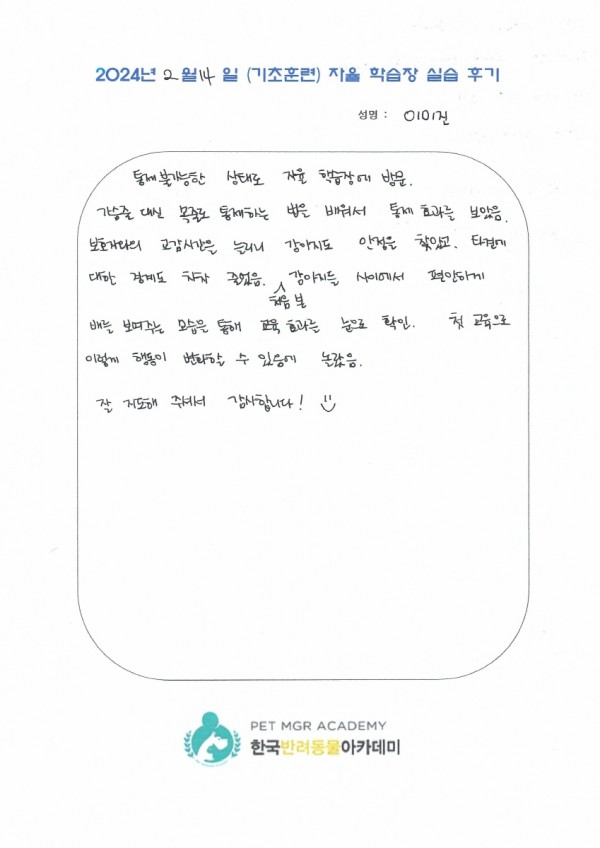 2024년 2월 14일 (기초훈련) 자율 학습장 실습 후기
성명 : 이미진
통제불가능한 상태로 자율 학습장에 방문.
가슴줄 대신 목줄로 통제하는 법을 배워서 통제 효과를 보았음.
보호자와의 교감시간을 늘리니 강아지도 안정을 찾았고. 타견에
대한 경계도 차차 줄었음. 강아지들 사이에서 편안하게
처음 본
배를 보여주는 모습을 통해 교육 효과를 눈으로 확인. 첫 교육으로
이렇게 행동이 변화할 수 있음에 놀랐음.
잘 지도해 주셔서 감사합니다!
PET MGR ACADEMY
한국반려동물아카데미